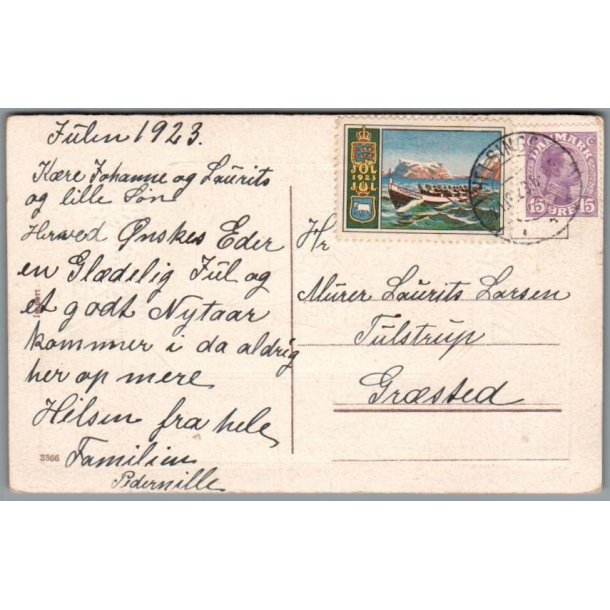 Julen 1923.
Kære Johanne og Laurits
og lille Søn
Herved Ønskes Eder
en Glædelig Jul og
et godt Nytaar
kommer i da aldrig
her op mere
Hilsen fra hele
Familien
Pedernille
3366
JOL
1923
JUL
DANMARK
15 ØRE 15
Hr
Murer Laurits Larsen
Tulstrup
Græsted